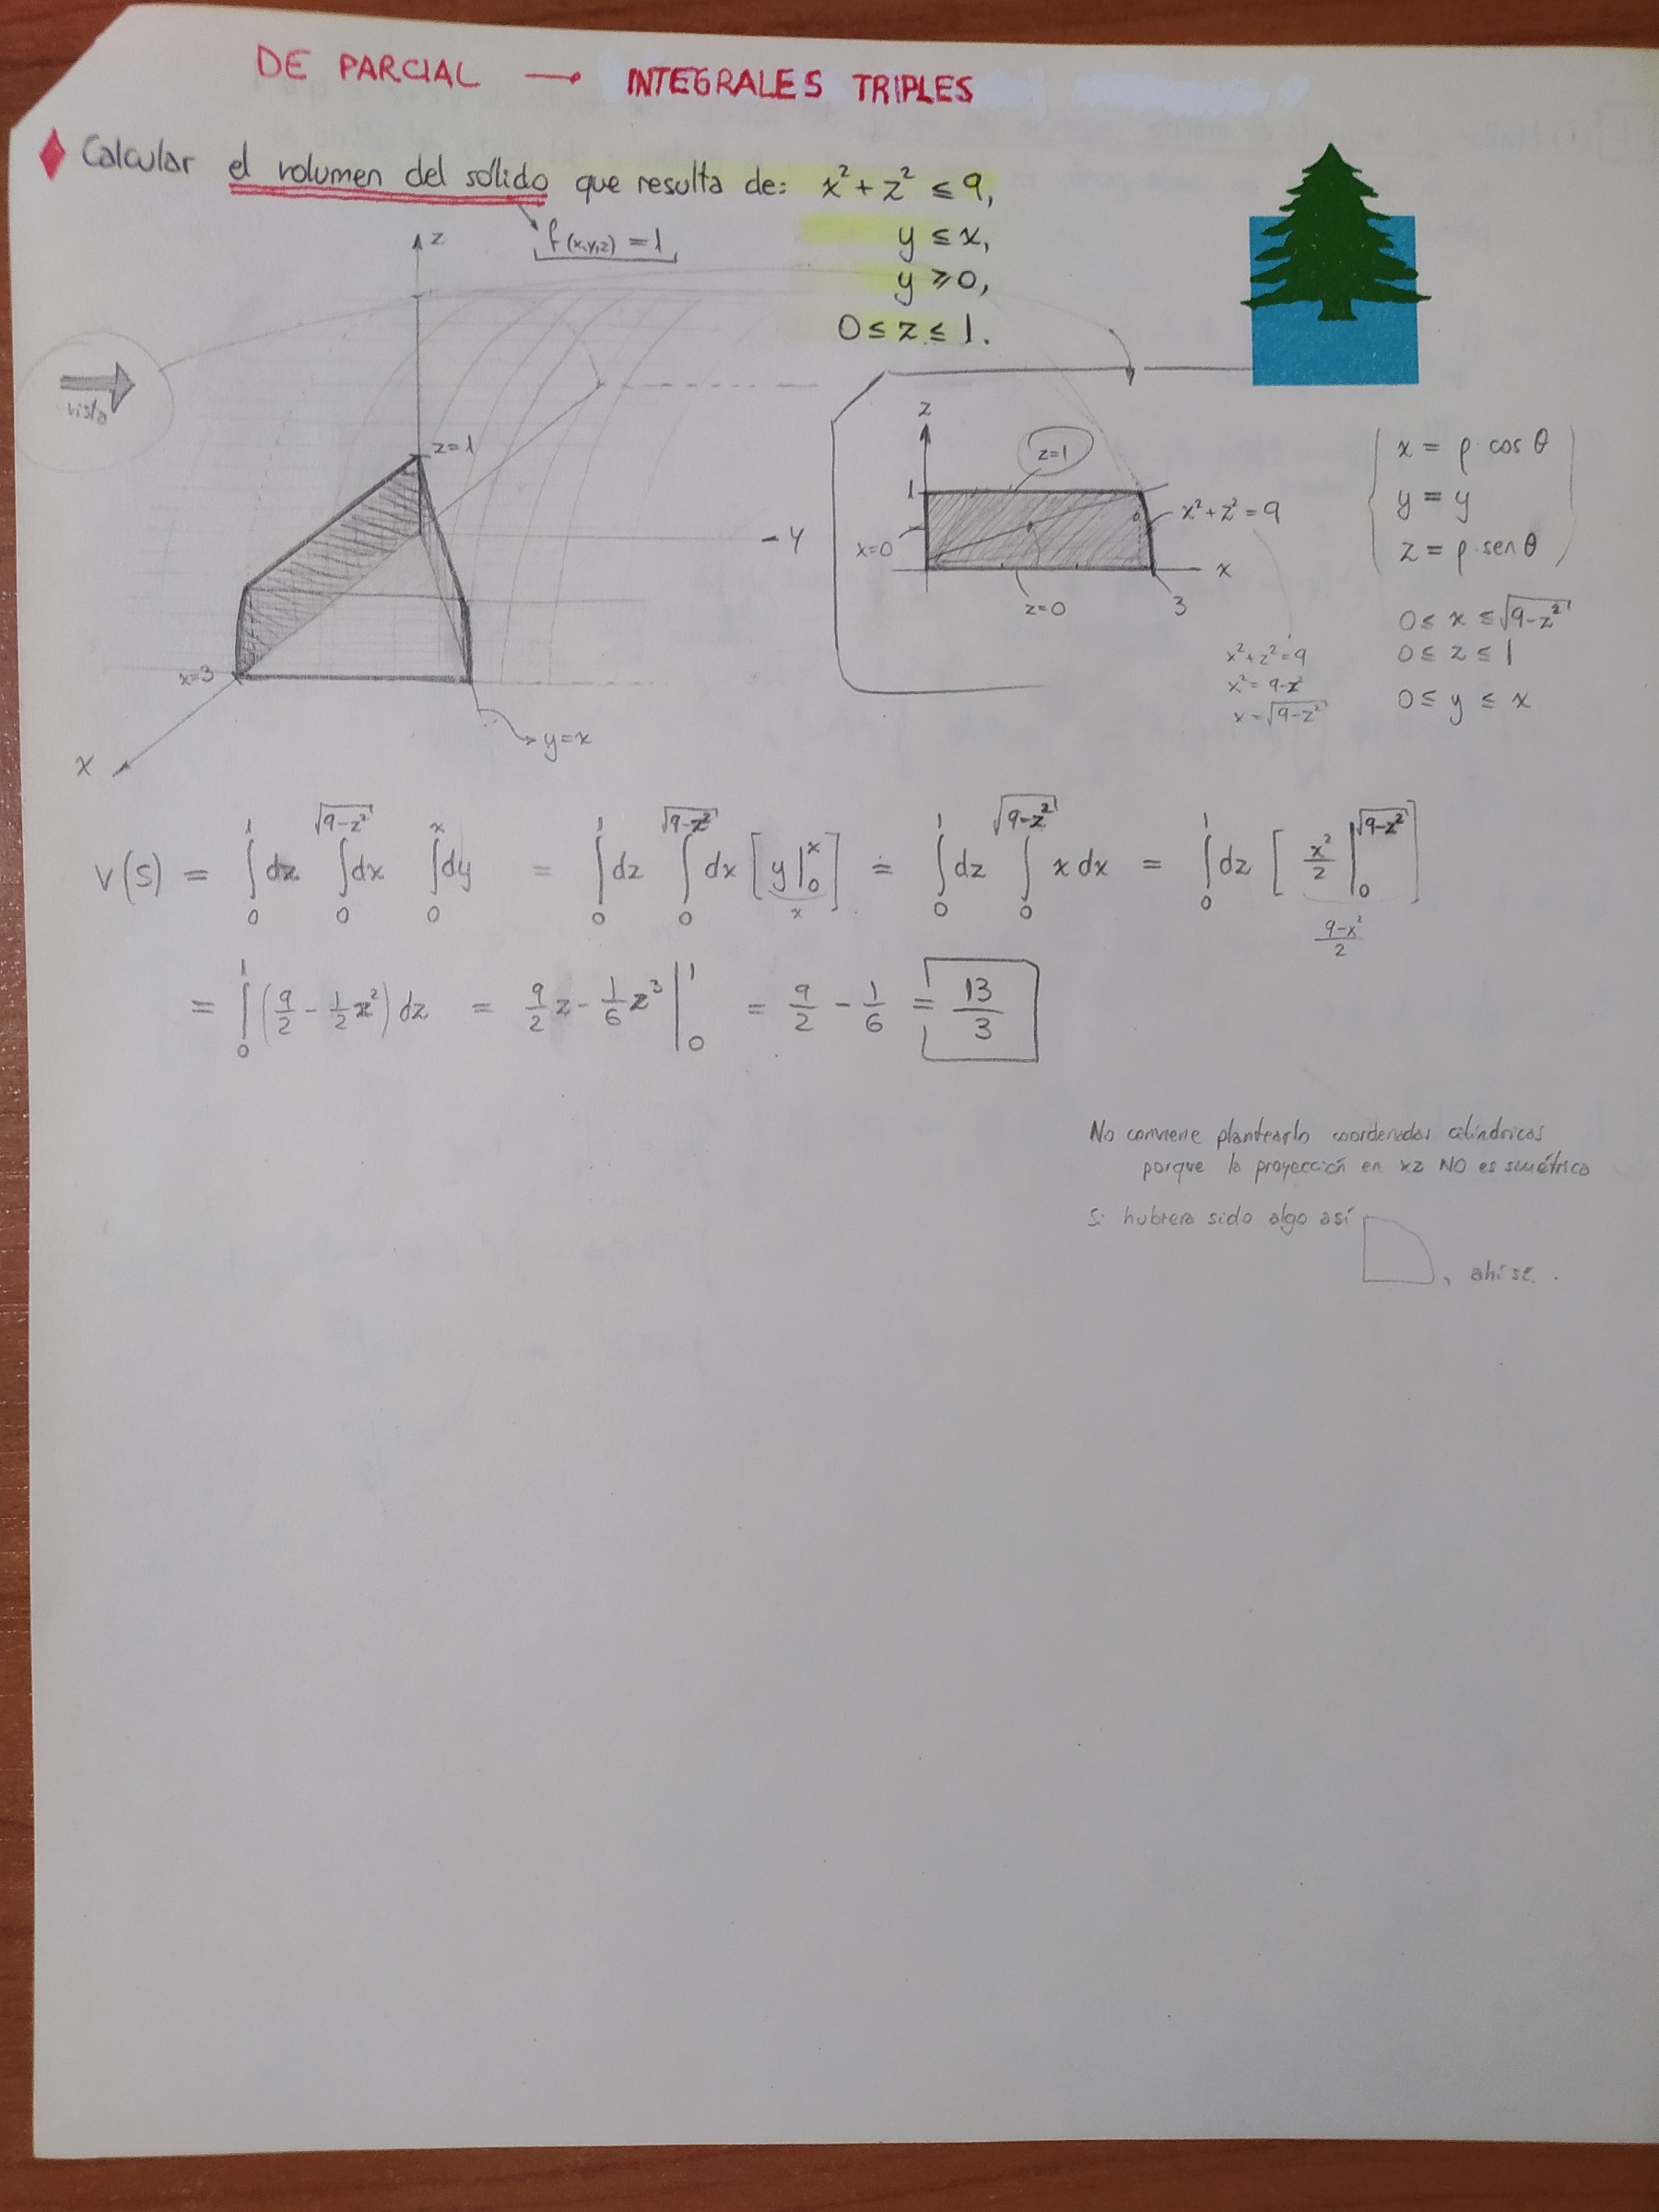 DE PARCIAL → INTEGRALES TRIPLES
Calcular el volumen del sólido que resulta de: x² + z² ≤ 9,
y ≤ x,
y ≥ 0,
0 ≤ z ≤ 1.
f(x,y,z) = 1
z
vista
z=1
Y
x=3
X
y=x
z
z=1
1
x=0
x² + z² = 9
x
z=0
3
x = ρ cos θ
y = y
z = ρ sen θ
x² + z² = 9
x² = 9-z²
x = √(9-z²)
0 ≤ x ≤ √(9-z²)
0 ≤ z ≤ 1
0 ≤ y ≤ x
V(S) = ∫₀¹ dz ∫₀^√(9-z²) dx ∫₀ˣ dy = ∫₀¹ dz ∫₀^√(9-z²) dx [y|₀ˣ] = ∫₀¹ dz ∫₀^√(9-z²) x dx = ∫₀¹ dz [x²/2 |₀^√(9-z²)]
x
9-x²/2
= ∫₀¹ (9/2 - 1/2 z²) dz = 9/2 z - 1/6 z³ |₀¹ = 9/2 - 1/6 = 13/3
No conviene plantearlo coordenadas cilíndricas
porque la proyección en xz NO es simétrica
Si hubiera sido algo así , ahí sí.